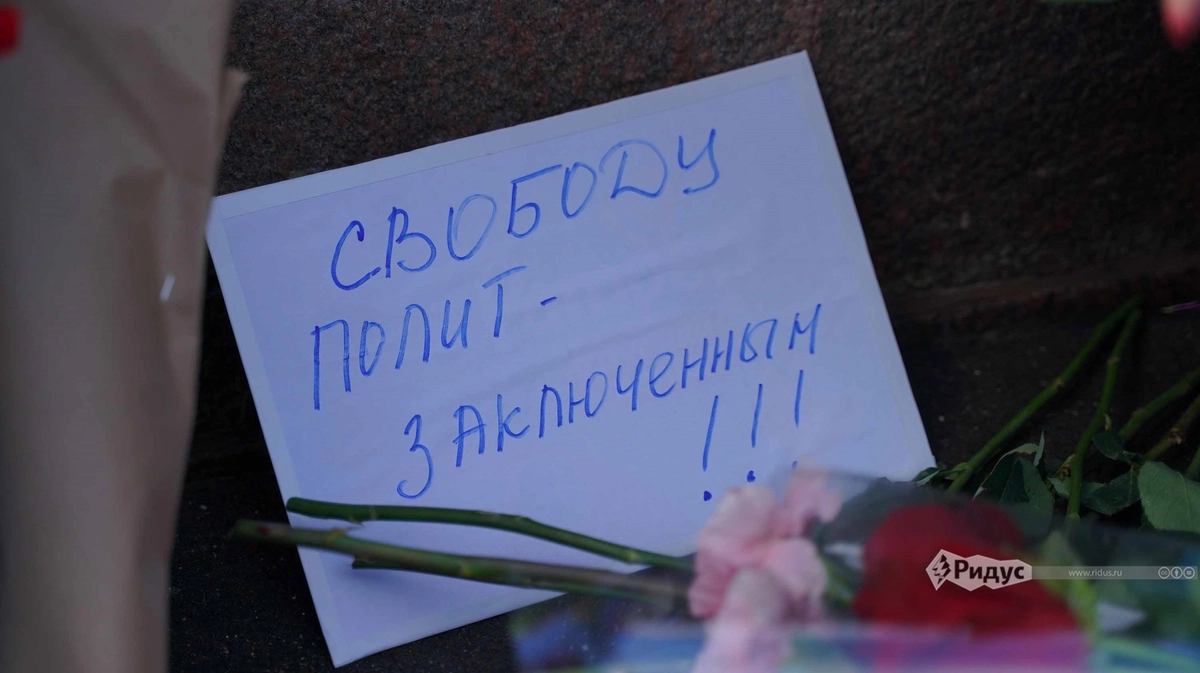 СВОБОДУ
ПОЛИТ-
ЗАКЛЮЧЕННЫМ
!!!
Ридус
www.ridus.ru